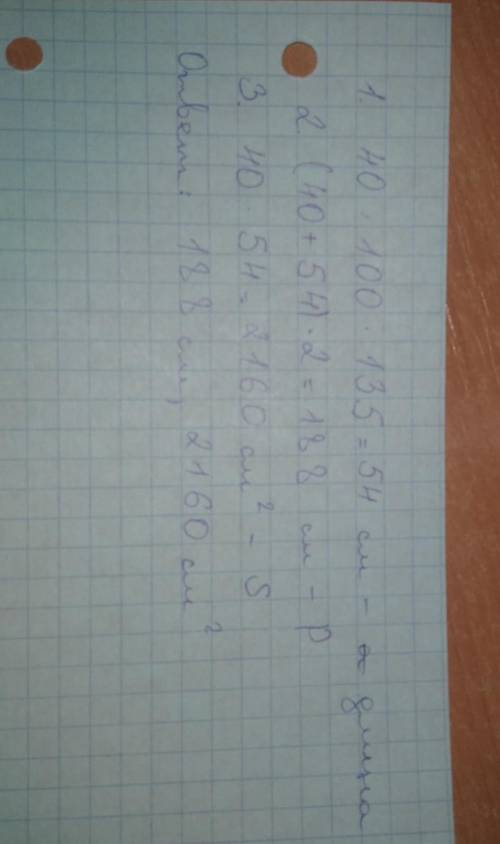 1. 40 · 100 · 135 = 54 см - длина
2 (40 + 54) · 2 = 188 см - P
3. 40 · 54 = 2160 см² - S
Ответ: 188 см, 2160 см²